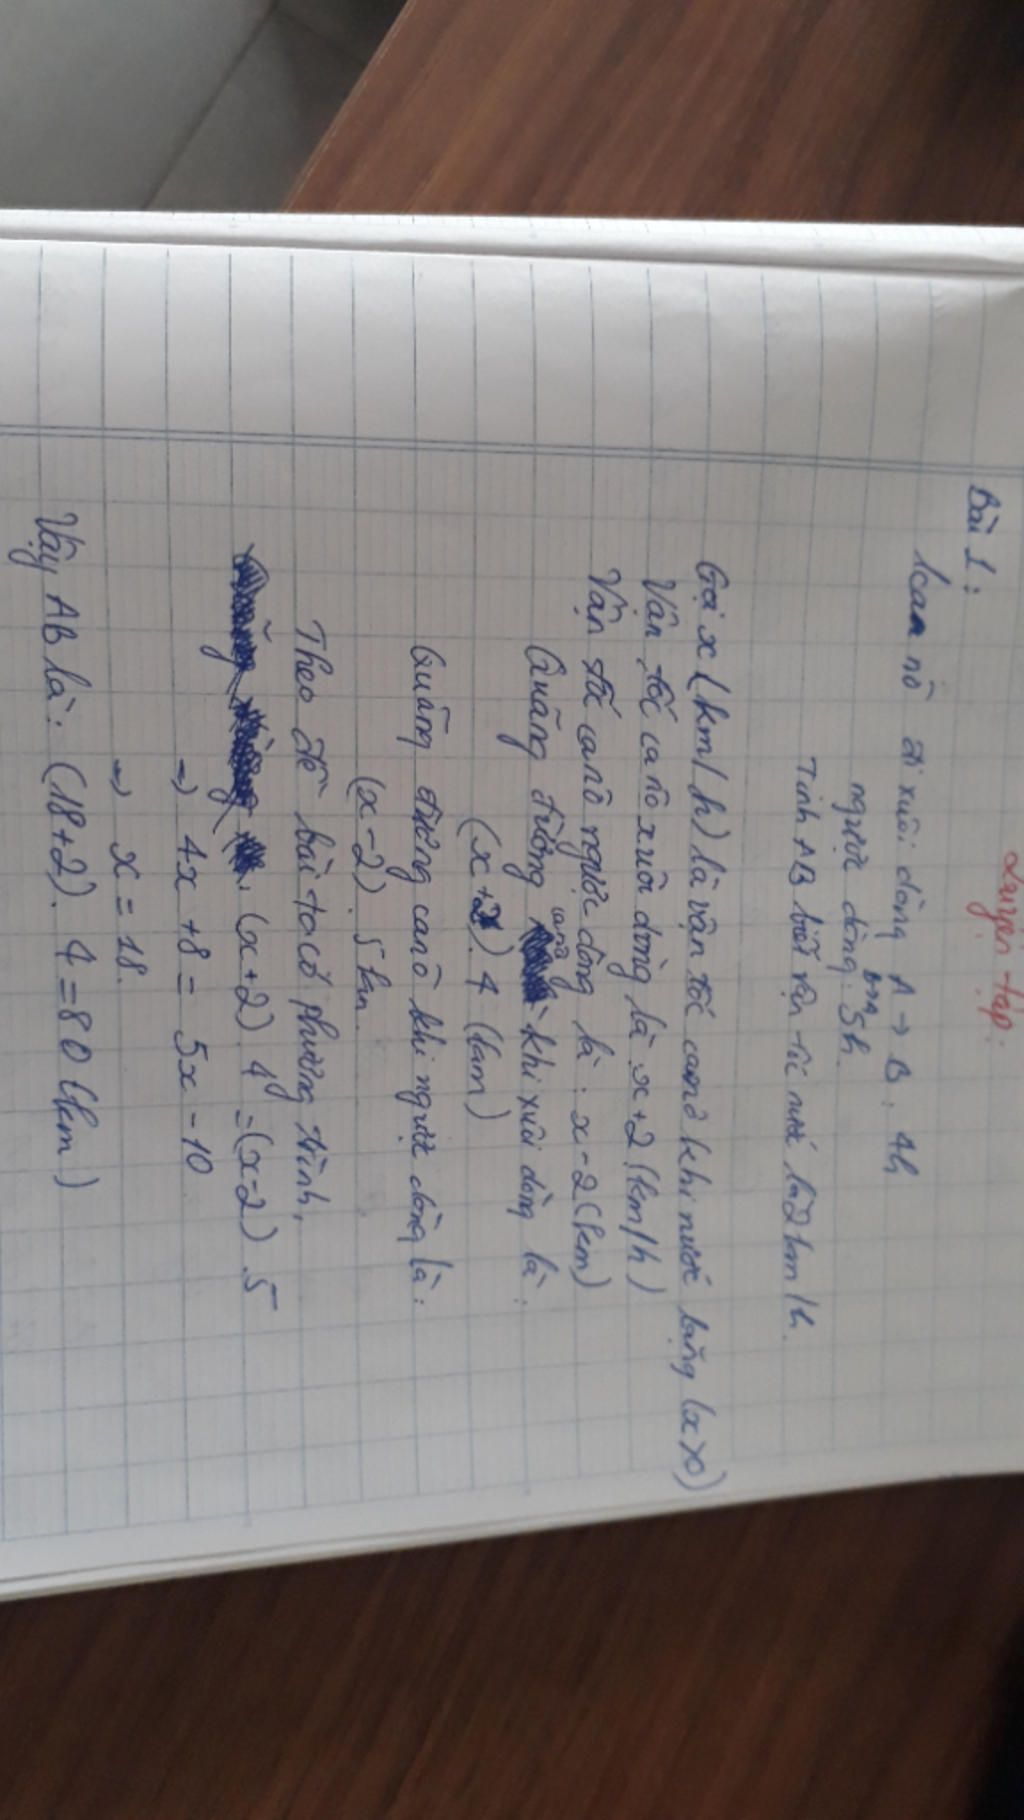 Luyện tập:
Bài 1:
1 ca nô đi xuôi dòng A → B : 4h
ngược dòng B→A 5h.
Tính AB biết vận tốc nước là 2 km/h.
Gọi x (km/h) là vận tốc canô khi nước lặng (x>0)
Vận tốc ca nô xuôi dòng là x+2 (km/h)
Vận tốc canô ngược dòng là : x-2 (km)
Quãng đường canô khi xuôi dòng là :
(x+2). 4 (km)
Quãng đường canô khi ngược dòng là :
(x-2) . 5 km.
Theo đề bài ta có phương trình,
(x+2) 4 = (x-2) .5
=> 4x +8 = 5x - 10
=> x = 18.
Vậy AB là : (18+2). 4 = 80 (km)